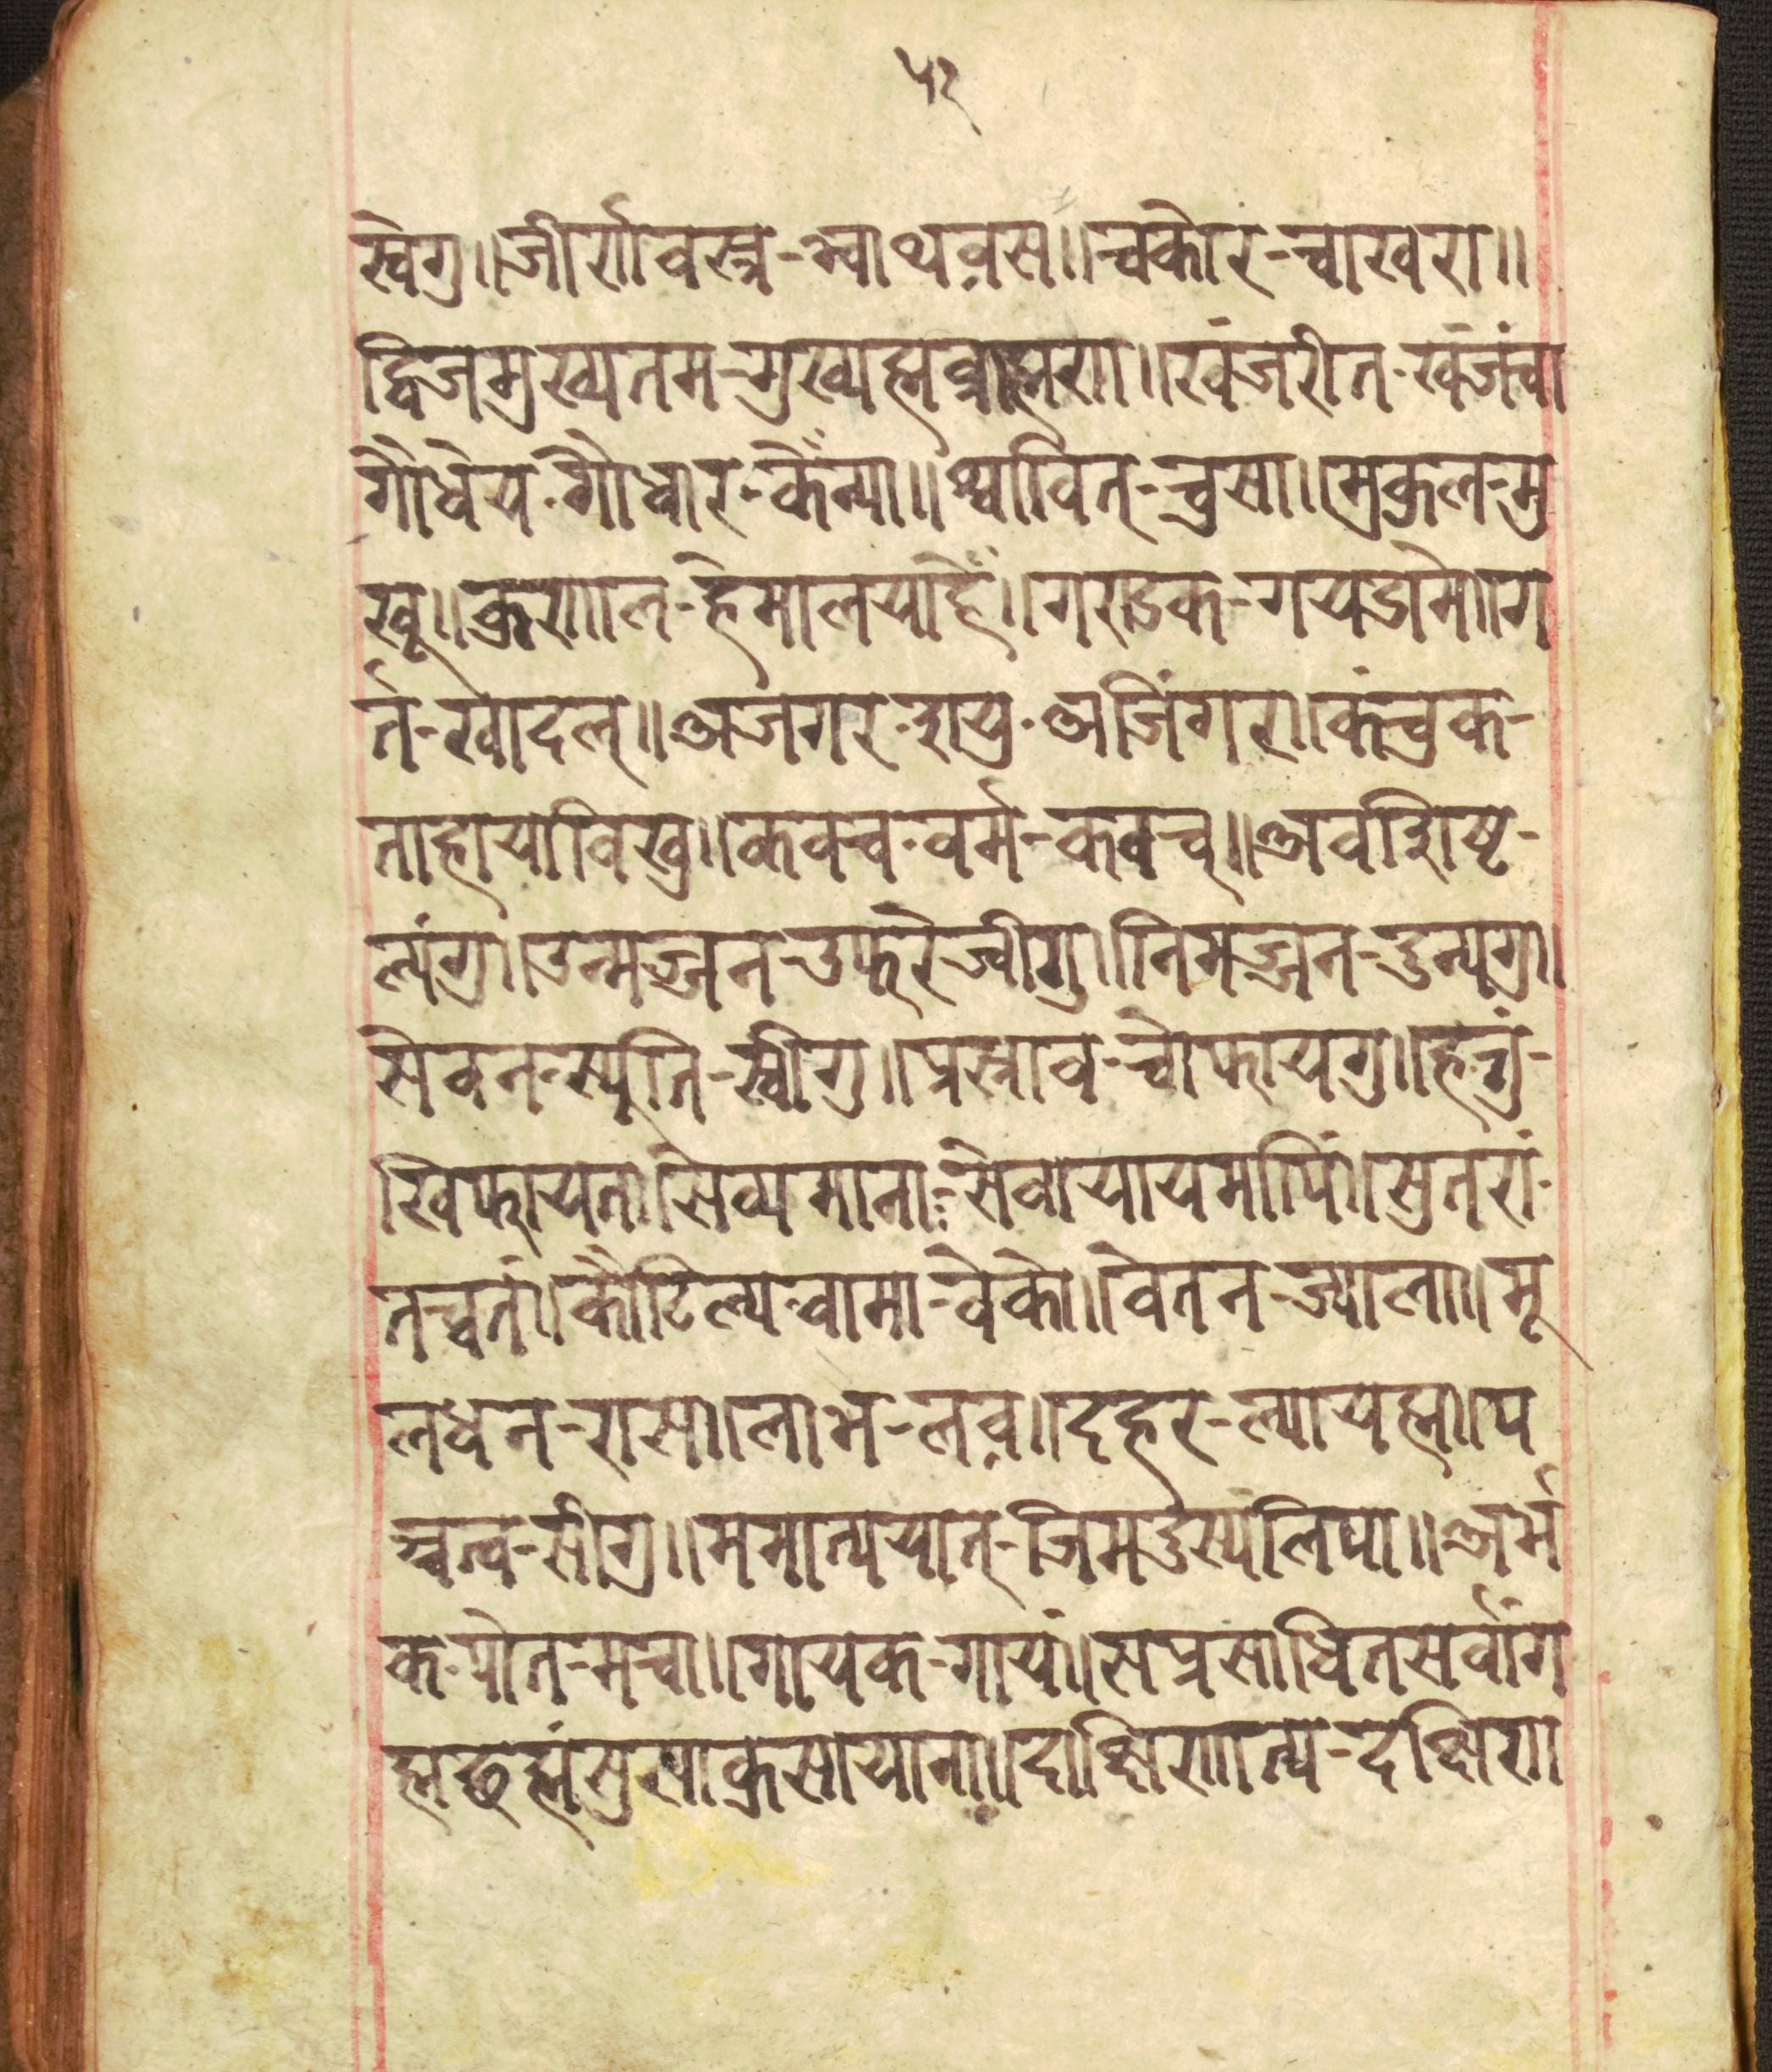 ५२
खेगु॥जीर्णवस्त्र-भ्वाथव़स॥चकोर-चाखरा॥
द्विजमुख्यतम-मुख्यह्मब्राह्मण॥खंजरीत-खंजंचा
गौधेय-गौधार-कैंन्या॥श्वावित्-चुसा॥मुकुल-मु
खू॥कुणाल-हेमालयाहँ॥गण्डक-गयडामे॥ग
र्त-खादल्॥अजगर-शयु-अजिंगर॥कंचुक-
ताहायाविखु॥कवच-वर्म-कवच्॥अवशिष्ट-
ल्यंगु॥उन्मज्जन-उफरेज्वीगु॥निमज्जन-दुन्यगु॥
सेवन-स्युति-स्वीगु॥प्रस्राव-चोफायगु॥हत्तुं-
खिफायत॥सेव्यमाना-सेवायायमापिं॥सुतरां-
तच्वतं॥कौटिल्य-वामा-वेको॥वेतन-ज्याला॥मू
लधन-रास॥लाभ-लव़॥दहर-ल्यायह्म॥प
ञ्चत्व-सीगु॥ममात्ययात्-जिमदुस्यंलिपा॥अर्भ
क-पोत-मचा॥गायक-गायं॥सप्रसाधितसर्वांग
ह्मछह्मंसुसाकुसायाना॥दाक्षिणात्य-दक्षिण